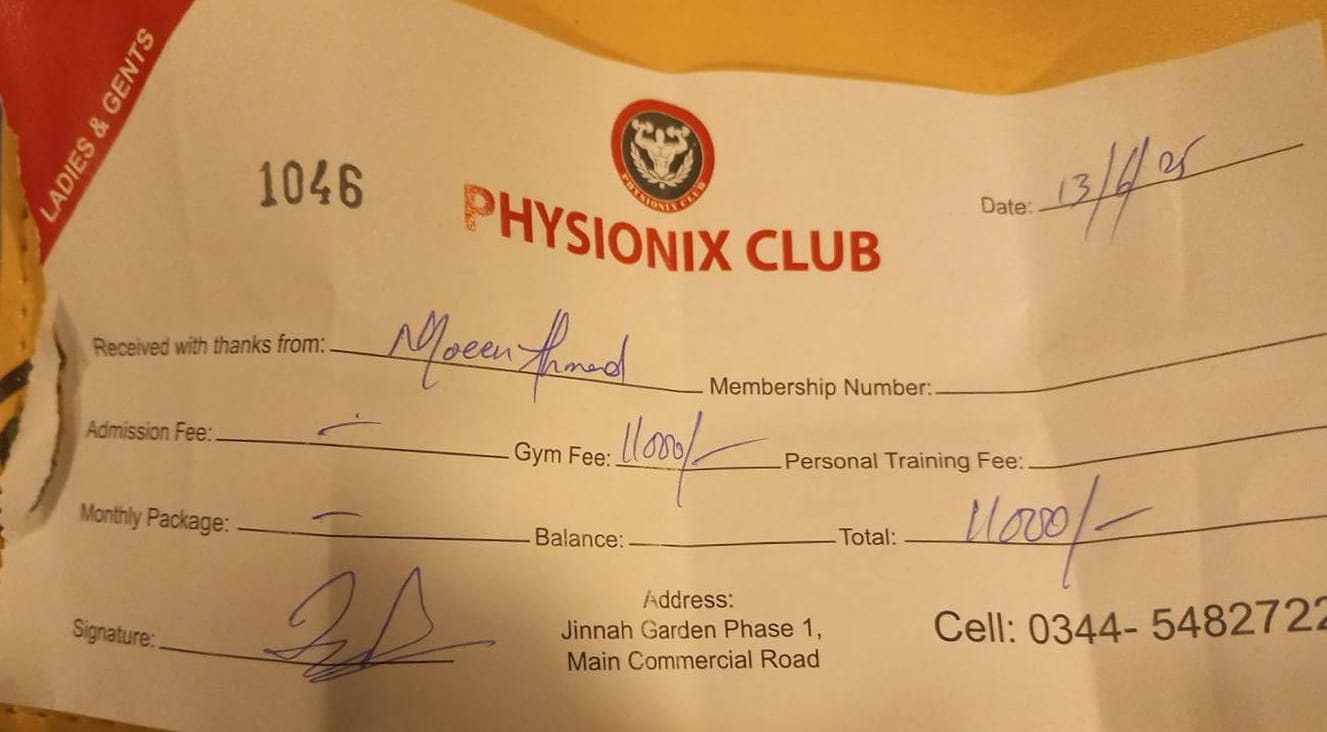 LADIES & GENTS
1046
PHYSIONIX CLUB
PHYSIONIX CLUB
Date: 13/6/25
Received with thanks from: Moeen Ahmed Membership Number:
Admission Fee: - Gym Fee: 11000/- Personal Training Fee:
Monthly Package: - Balance: Total: 11000/-
Signature:
Address:
Jinnah Garden Phase 1,
Main Commercial Road
Cell: 0344- 5482722